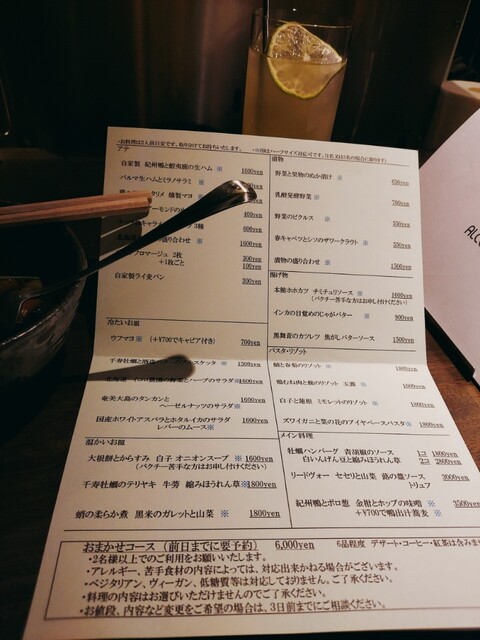 ・お料理は2人前目安です。取り分けてお持ちいたします。
アテ
自家製 紀州鴨と蝦夷鹿の生ハム ※ 1600yen
パルマ生ハムとミラノサラミ ※
燻製マヨ
3種 600yen
盛り合わせ ※ 1600yen
フロマージュ 2枚 300yen
+1枚ごと 100yen
自家製ライ麦パン 300yen
冷たいお皿
ウフマヨ※ (+¥700でキャビア付き) 700yen
千寿牡蠣と 1500yen
ハーブのサラダ※1600yen
奄美大島のタンカンと
ヘーゼルナッツのサラダ※ 1600yen
国産ホワイトアスパラとホタルイカのサラダ
レバーのムース※ 1600yen
温かいお皿
大根餅とからすみ 白子 オニオンスープ ※ 1600yen
(パクチー苦手な方はお申し付けください)
千寿牡蠣のテリヤキ 牛蒡 縮みほうれん草※1800yen
蛸の柔らか煮 黒米のガレットと山菜 ※ 1800yen
漬物
野菜と果物のぬか漬け ※ 650yen
乳酸発酵野菜 ※ 700yen
野菜のピクルス ※ 550yen
春キャベツとシソのザワークラウト ※ 550yen
漬物の盛り合わせ ※ 1500yen
揚げ物
本鮪ホホカツ チミチュリソース ※ 1600yen
(パクチー苦手な方はお申し付けください)
インカの目覚めのじゃがバター ※ 900yen
黒舞茸のカツレツ 焦がしバターソース 1500yen
パスタ・リゾット
春菊のリゾット ※ 1800yen
リゾット 玉露 ※ 1800yen
白子と蓮根 ミモレットのリゾット ※ 1800yen
ズワイガニと菜の花のアメリケーヌパスタ※ 1800yen
メイン料理
牡蠣ハンバーグ 青胡椒のソース 1コ 1800yen
白いんげん豆と縮みほうれん草 2コ 2800yen
リードヴォー セセリと山菜 蕗の薹ソース 3000yen
トリュフ
紀州鴨とポロ葱 金柑とホップの味噌 ※ 3500yen
+¥700で鴨出汁蕎麦 ※
おまかせコース(前日までに要予約) 6,000yen 6品程度 デザート・コーヒー・紅茶は含みま
・2名様以上でのご利用をお願いいたします。
・アレルギー、苦手食材の内容によっては、対応出来かねる場合がございます。
・ベジタリアン、ヴィーガン、低糖質等は対応しておりません。ご了承ください。
・料理の内容はお選びいただけませんのでご了承ください。
・お値段、内容など変更をご希望の場合は、3日前までにご相談ください。